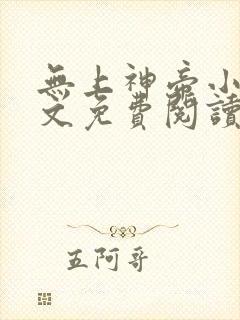 無上神帝小
文免費閱讀
五阿哥